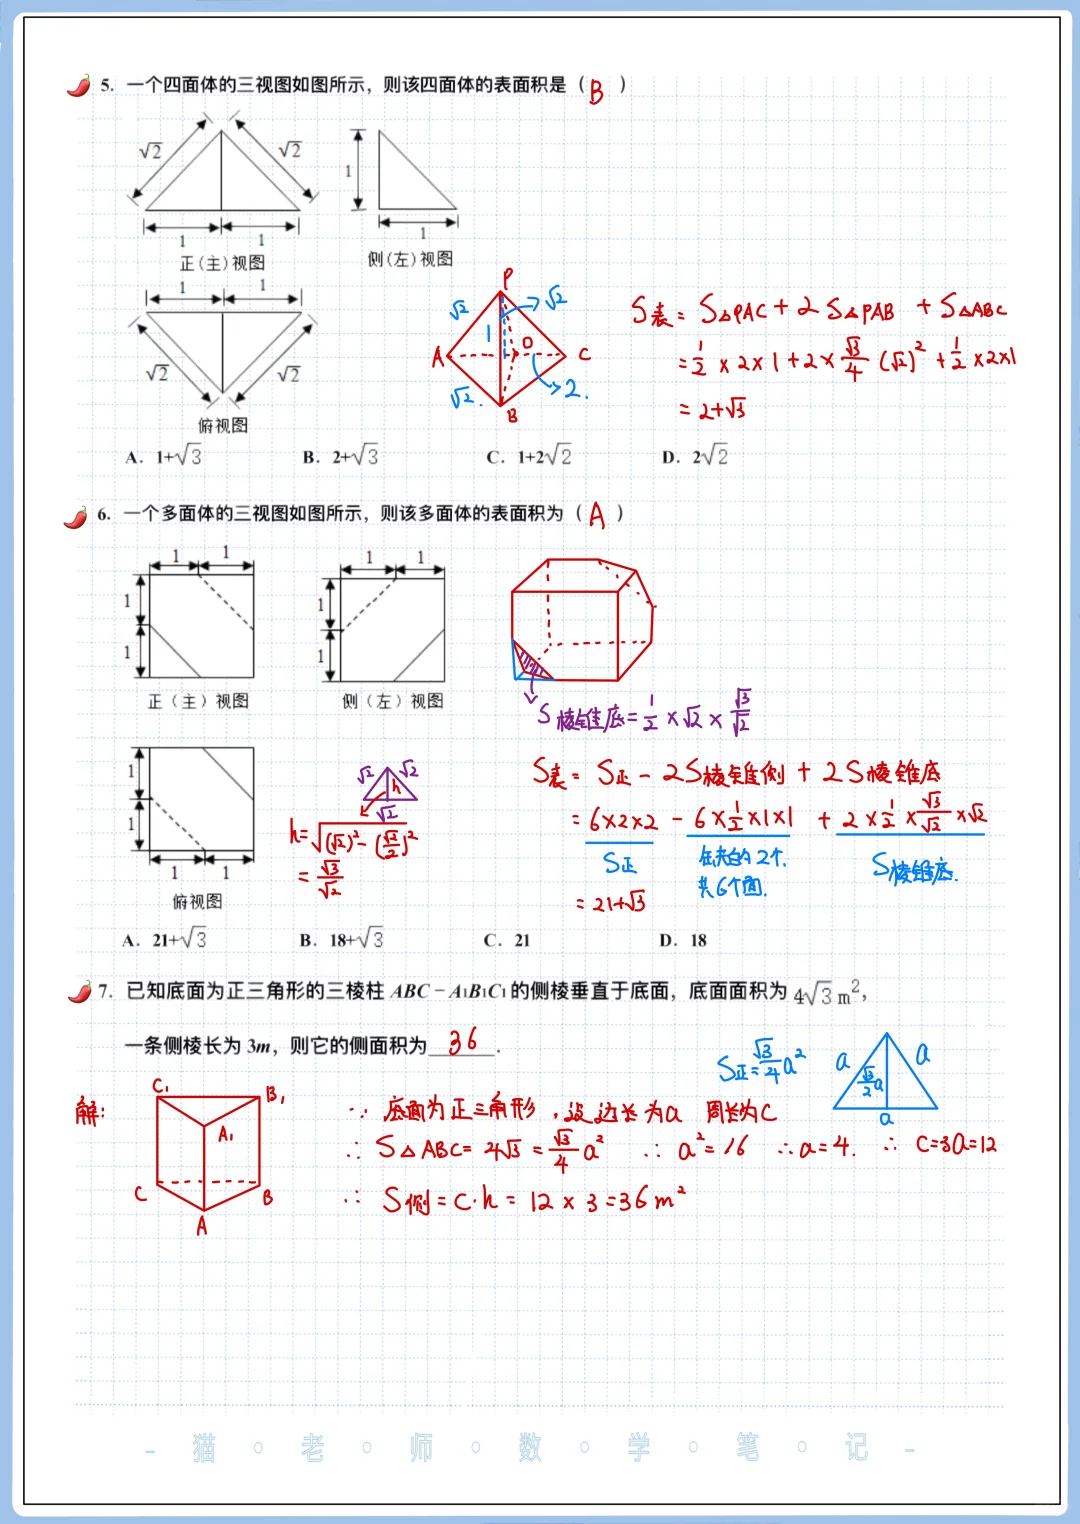 5. 一个四面体的三视图如图所示，则该四面体的表面积是（ B ）
√2 √2
1 1
正(主)视图
1
1
侧(左)视图
1 1
√2 √2
俯视图
P
√2 √2
1
A O C
√2. 2.
B
S表 = S△PAC + 2S△PAB + S△ABC
= 1/2 × 2×1 + 2× √3/4 (√2)² + 1/2 ×2×1
= 2+√3
A. 1+√3 B. 2+√3 C. 1+2√2 D. 2√2
6. 一个多面体的三视图如图所示，则该多面体的表面积为（ A ）
1 1
1
1
正（主）视图
1 1
1
1
侧（左）视图
1
1
1 1
俯视图
S棱锥底 = 1/2 × √2 × √3/√2
√2 √2
h
√2
h= √((√2)² − (√2/2)²)
= √3/√2
S表 = S正 − 2S棱锥侧 + 2S棱锥底
= 6×2×2 − 6×1/2×1×1 + 2×1/2×√3/√2×√2
S正
2个.
共6个面.
S棱锥底.
= 21+√3
A. 21+√3 B. 18+√3 C. 21 D. 18
7. 已知底面为正三角形的三棱柱 ABC－A₁B₁C₁ 的侧棱垂直于底面，底面面积为 4√3 m²，
一条侧棱长为 3m，则它的侧面积为 36 .
S正=√3/4 a²
a a
√3/2 a
a
解:
C₁ B₁
A₁
C B
A
∵ 底面为正三角形，设边长为a 周长为C
∴ S△ABC= 4√3 = √3/4 a² ∴ a²=16 ∴a=4. ∴ C=3a=12
∴ S侧 = C·h = 12 × 3 = 36 m²
- 猫 · 老 · 师 · 数 · 学 · 笔 · 记 -